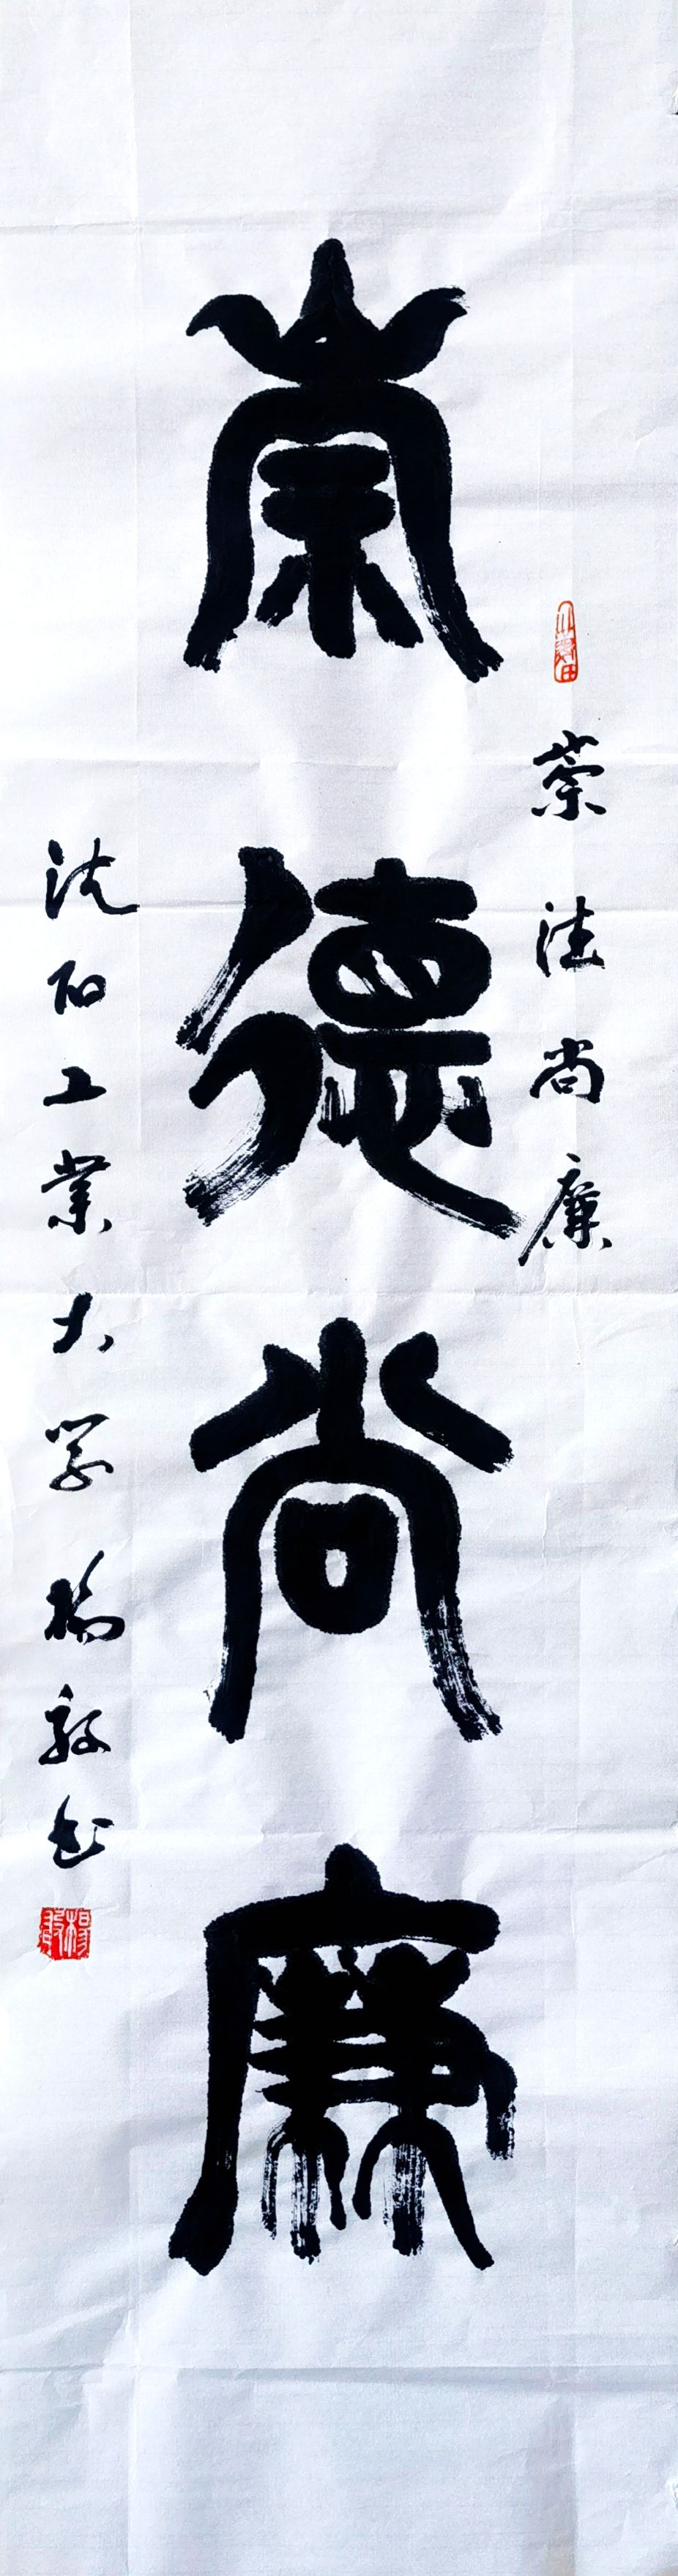 崇德尚廉
崇德尚廉
沈阳工业大学杨毅书
杨毅